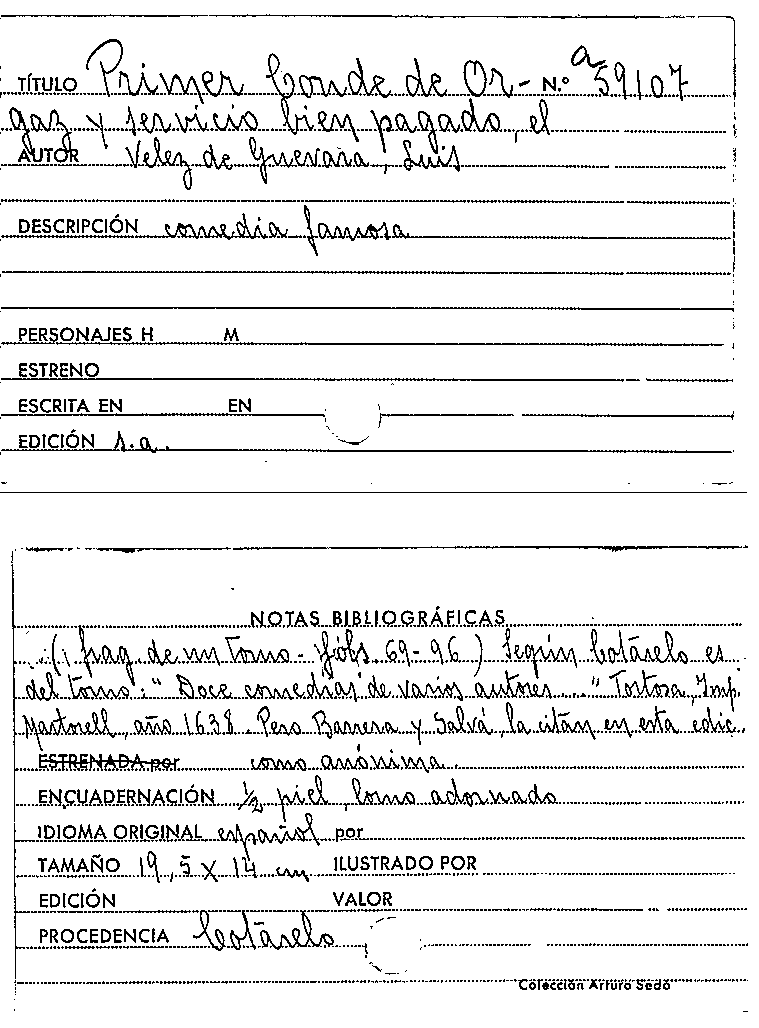 TÍTULO Primer Conde de Or- N.º a 59107
gaz y servicio bien pagado, el
AUTOR Velez de Guevara, Luis
DESCRIPCIÓN comedia famosa
PERSONAJES H M
ESTRENO
ESCRITA EN EN
EDICIÓN s.a.
NOTAS BIBLIOGRÁFICAS
(frag. de un tomo - fóls. 69-96) Según Cotárelo es
del tomo: "Doce comedias de varios autores..." Tortosa, Imp.
Martorell, año 1638. Pero Barrera y Salvá, la citan en esta edic.
ESTRENADA por como anónima.
ENCUADERNACIÓN ½ piel, lomo adornado
IDIOMA ORIGINAL español por
TAMAÑO 19,5 X 14 cm ILUSTRADO POR
EDICIÓN VALOR
PROCEDENCIA Cotárelo
Colección Arturo Sedó